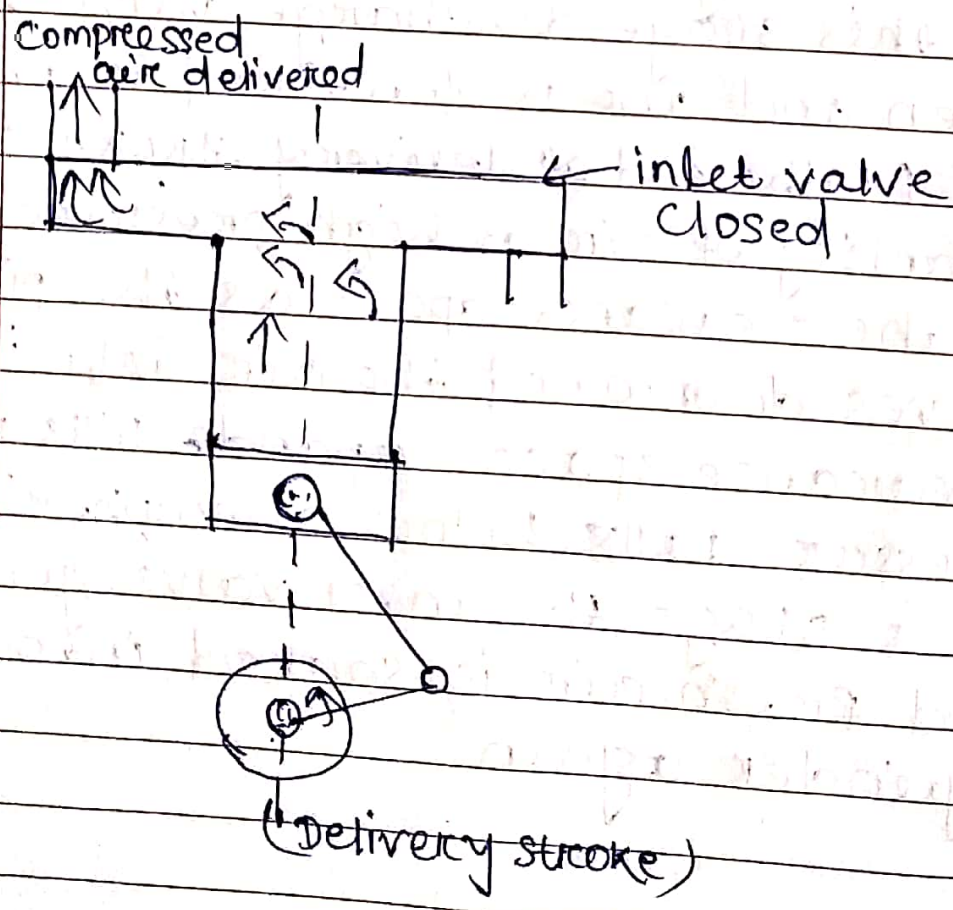 compressed
air delivered
inlet valve
closed
(Delivery stroke)